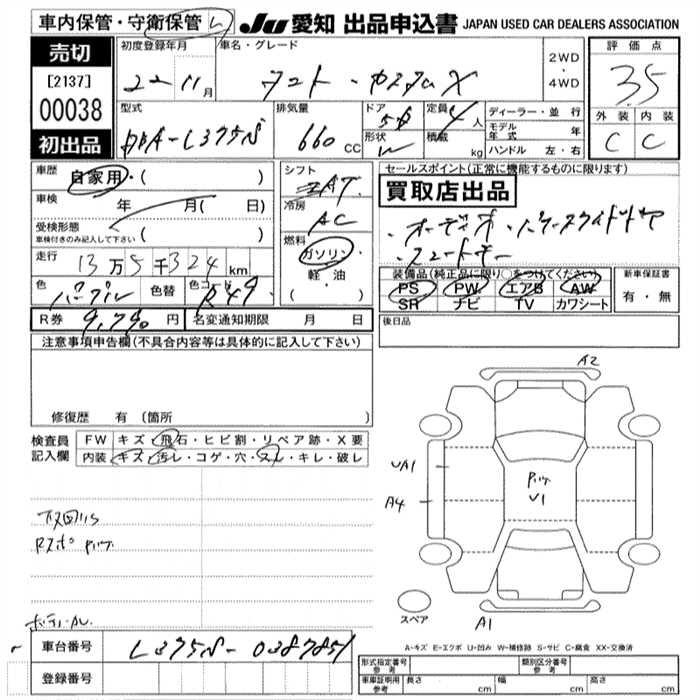 車内保管・守衛保管 JU 愛知 出品申込書 JAPAN USED CAR DEALERS ASSOCIATION
売切
[2137]
00038
初出品
初度登録年月 車名・グレード
22 11月 タント・カスタムX
2WD
・
4WD
評価点
3.5
外装 内装
C C
型式 排気量 ドア 定員 ディーラー・並行
DBA-L375S 660 CC 5D 4人
形状 積載 モデル年式 年
kg ハンドル 左・右
車歴 自家用・( )
車検 年 月( 日)
受検形態
車検付きのみ記入して下さい ( )
走行 13万5千324km
色 パープル 色替 色コード R49
R券 9,790円 名変通知期限 月 日
シフト AT
冷房 AC
燃料
ガソリン
・
軽・油
( )
セールスポイント(正常に機能するものに限ります)
買取店出品
装備品(純正品に限り○をつけてください)
PS PW エアB AW
SR ナビ TV カワシート
新車保証書
有・無
後日品
注意事項申告欄(不具合内容等は具体的に記入して下さい)
修復歴 有(箇所 )
検査員記入欄 FW キズ・飛石・ヒビ割・リペア跡・X要
内装 キズ・汚レ・コゲ・穴・スレ・キレ・破レ
A2
UA1
A4
U1
スペア
A1
A-キズ E-エクボ U-凹み W-補修跡 S-サビ C-腐食 XX-交換済
車台番号 L375S-0387851
登録番号
形式指定番号 参考 類別区分番号 参考
車庫証明用 参考 長さ cm 幅 cm 高さ cm